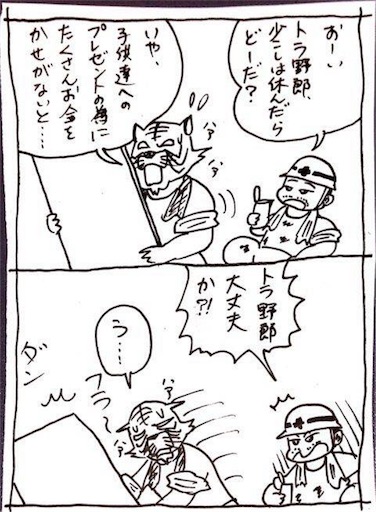 おーい
トラ野郎、
少しは休んだら
どーだ?
いや、
子供達への
プレゼントの為に
たくさんお金を
かせがないと……
ハァ
ハァ
トラ野郎
大丈夫
か?!
う…
フラ〜
ハァ
ハァ
ダン